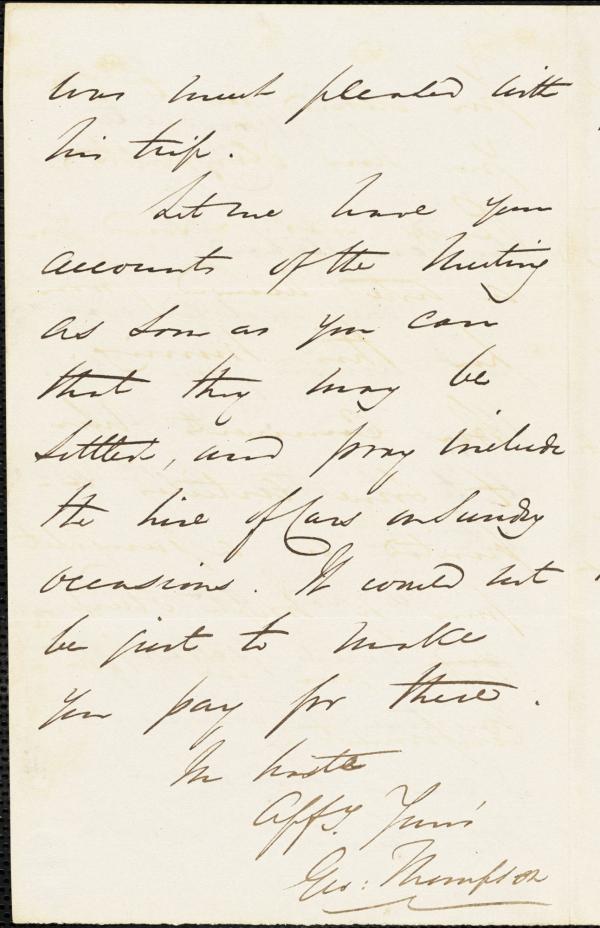 was much pleased with
his trip.
Let me have your
accounts of the Meeting
as soon as you can
that they may be
settled, and pray include
the hire of Cars on Sundry
occasions. It would not
be just to make
you pay for these.
In haste
Affy. Yours
Geo: Thompson